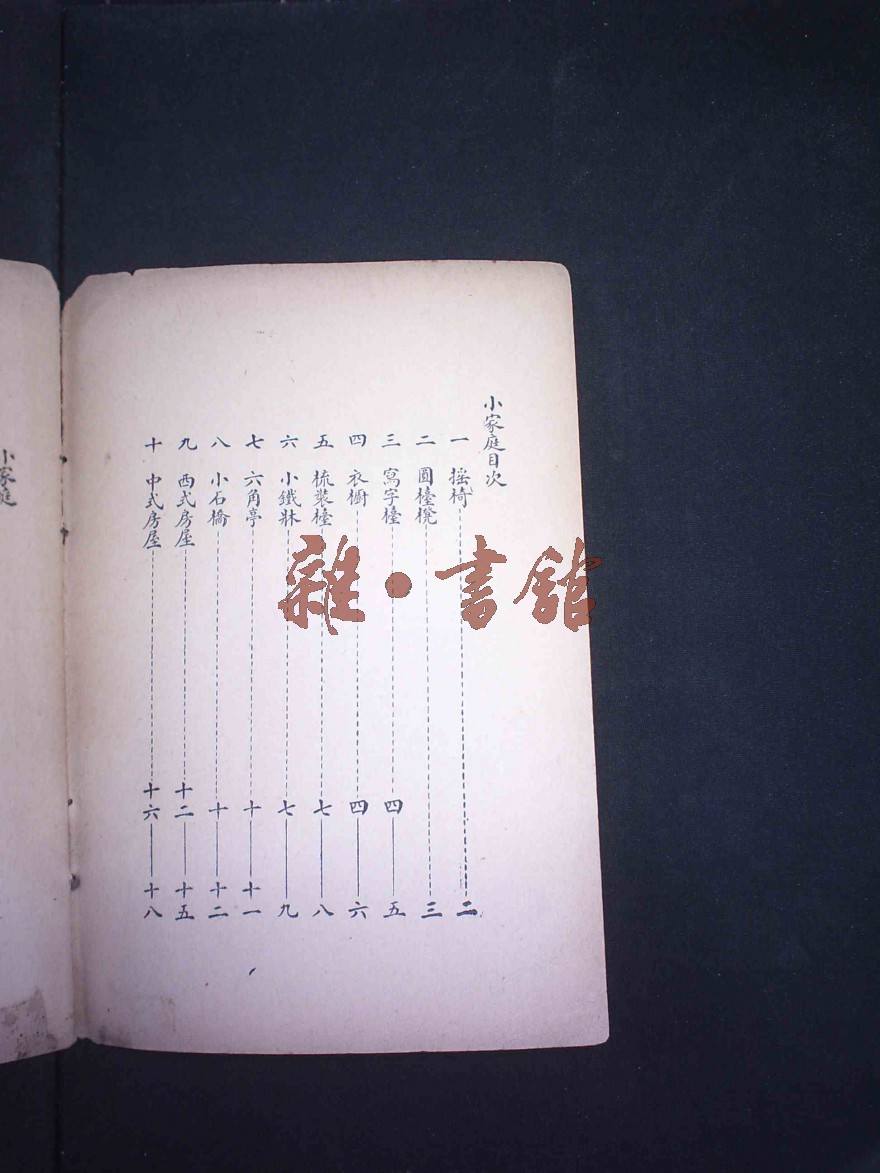 小家庭目次
一 摇椅 二
二 圓檯櫈 三
三 寫字檯 四——五
四 衣櫥 四——六
五 梳裝檯 七——八
六 小鐵牀 七——九
七 六角亭 十——十一
八 小石橋 十——十二
九 西式房屋 十二——十五
十 中式房屋 十六——十八
小家庭
雜·書館